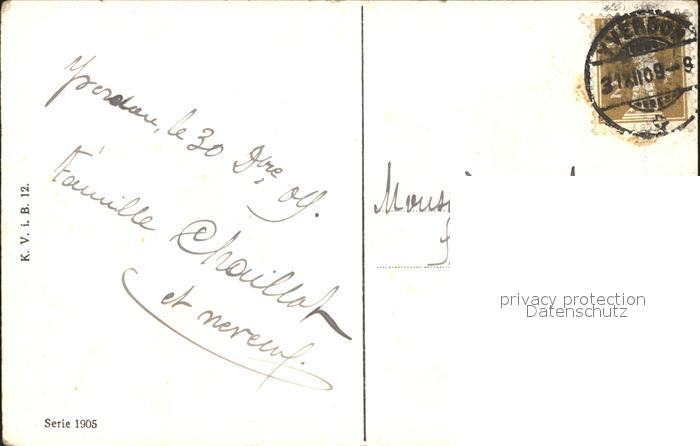 Yverdon, le 30 Dbre 09.
Famille Chaillot
et neveux.
K. V. i. B. 12.
Serie 1905
YVERDON
31 XII 09 - 8
2
privacy protection
Datenschutz